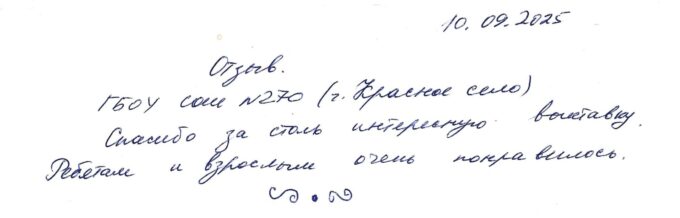 10.09.2025
Отзыв.
ГБОУ сош №270 (г. Красное село)
Спасибо за столь интересную выставку.
Ребятам и взрослым очень понравилось.